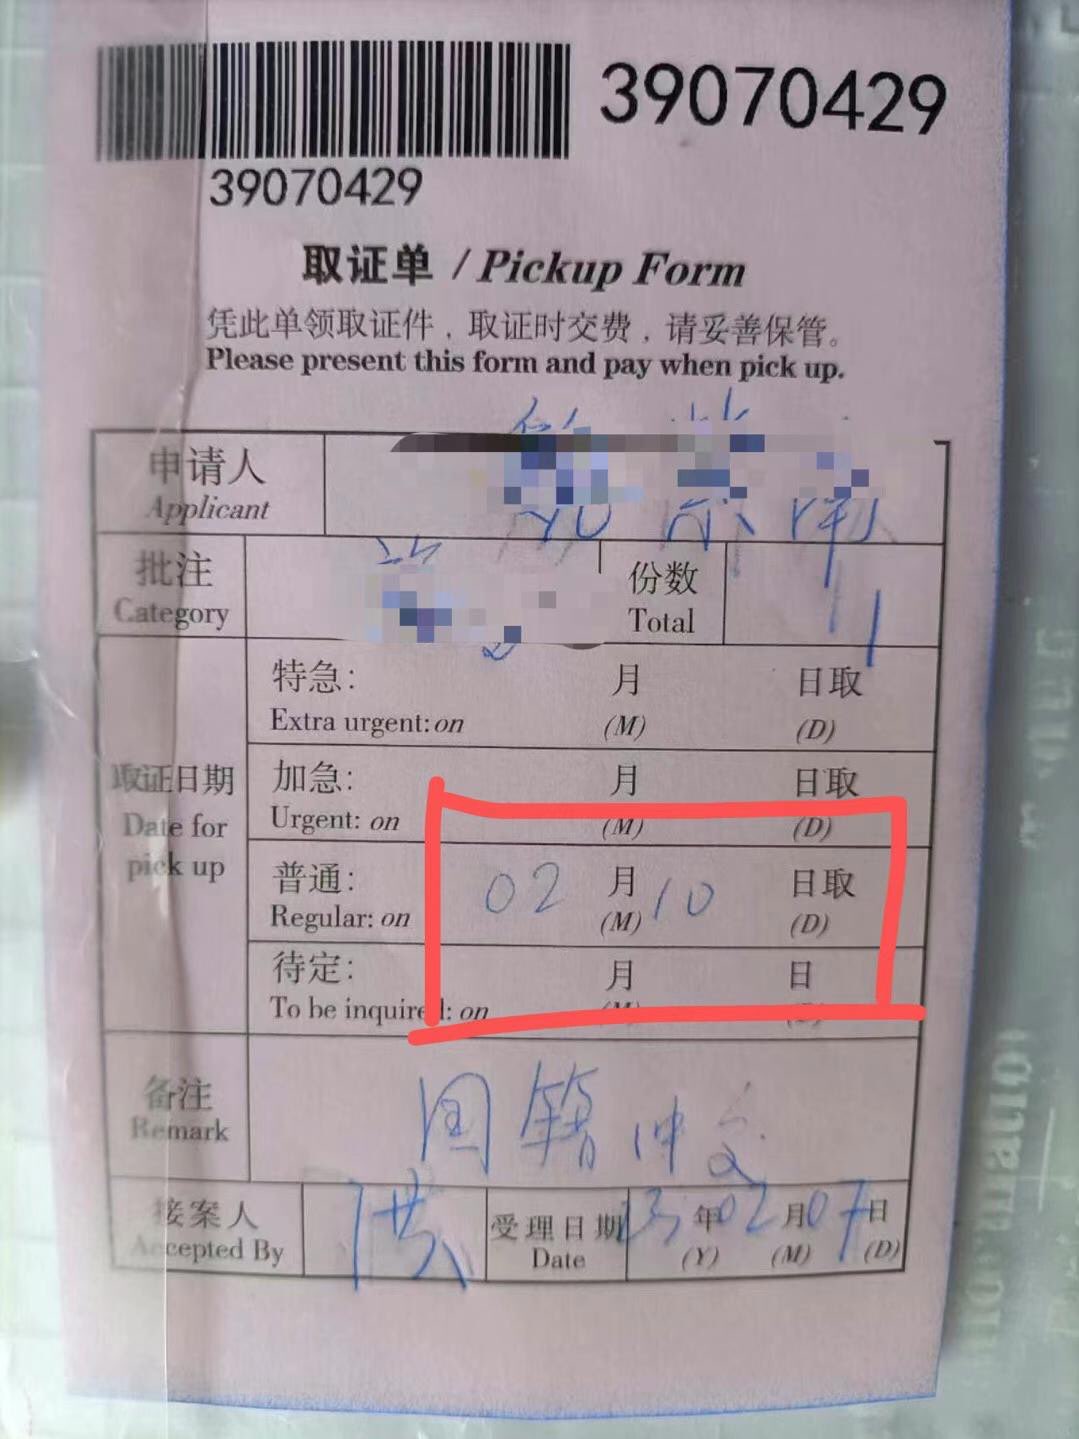 39070429
39070429
取证单 / Pickup Form
凭此单领取证件，取证时交费，请妥善保管。
Please present this form and pay when pick up.
申请人
Applicant
批注
Category
份数
Total
1
取证日期
Date for
pick up
特急: 月 日取
Extra urgent: on (M) (D)
加急: 月 日取
Urgent: on (M) (D)
普通: 02 月 10 日取
Regular: on (M) (D)
待定: 月 日
To be inquired: on (M) (D)
备注
Remark
国籍冲交
接案人
Accepted By
洪
受理日期
Date
23 年 02 月 07 日
(Y) (M) (D)